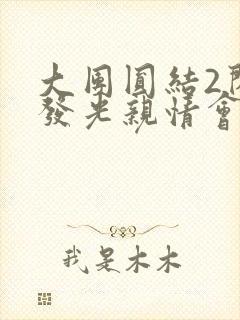 大團圓結2
發光親情會
我是木木